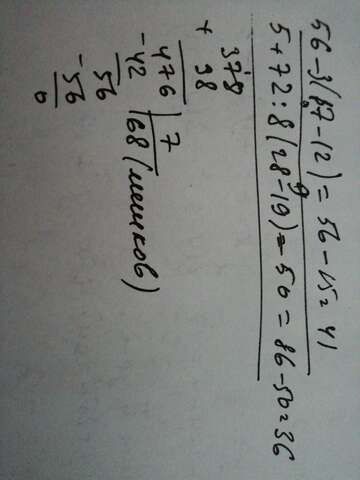 56-3(17-12)=56-15=41
5+72:8(28-19)-50=86-50=36
378
+ 98
476 | 7
-42 68 (мешков)
56
-56
0